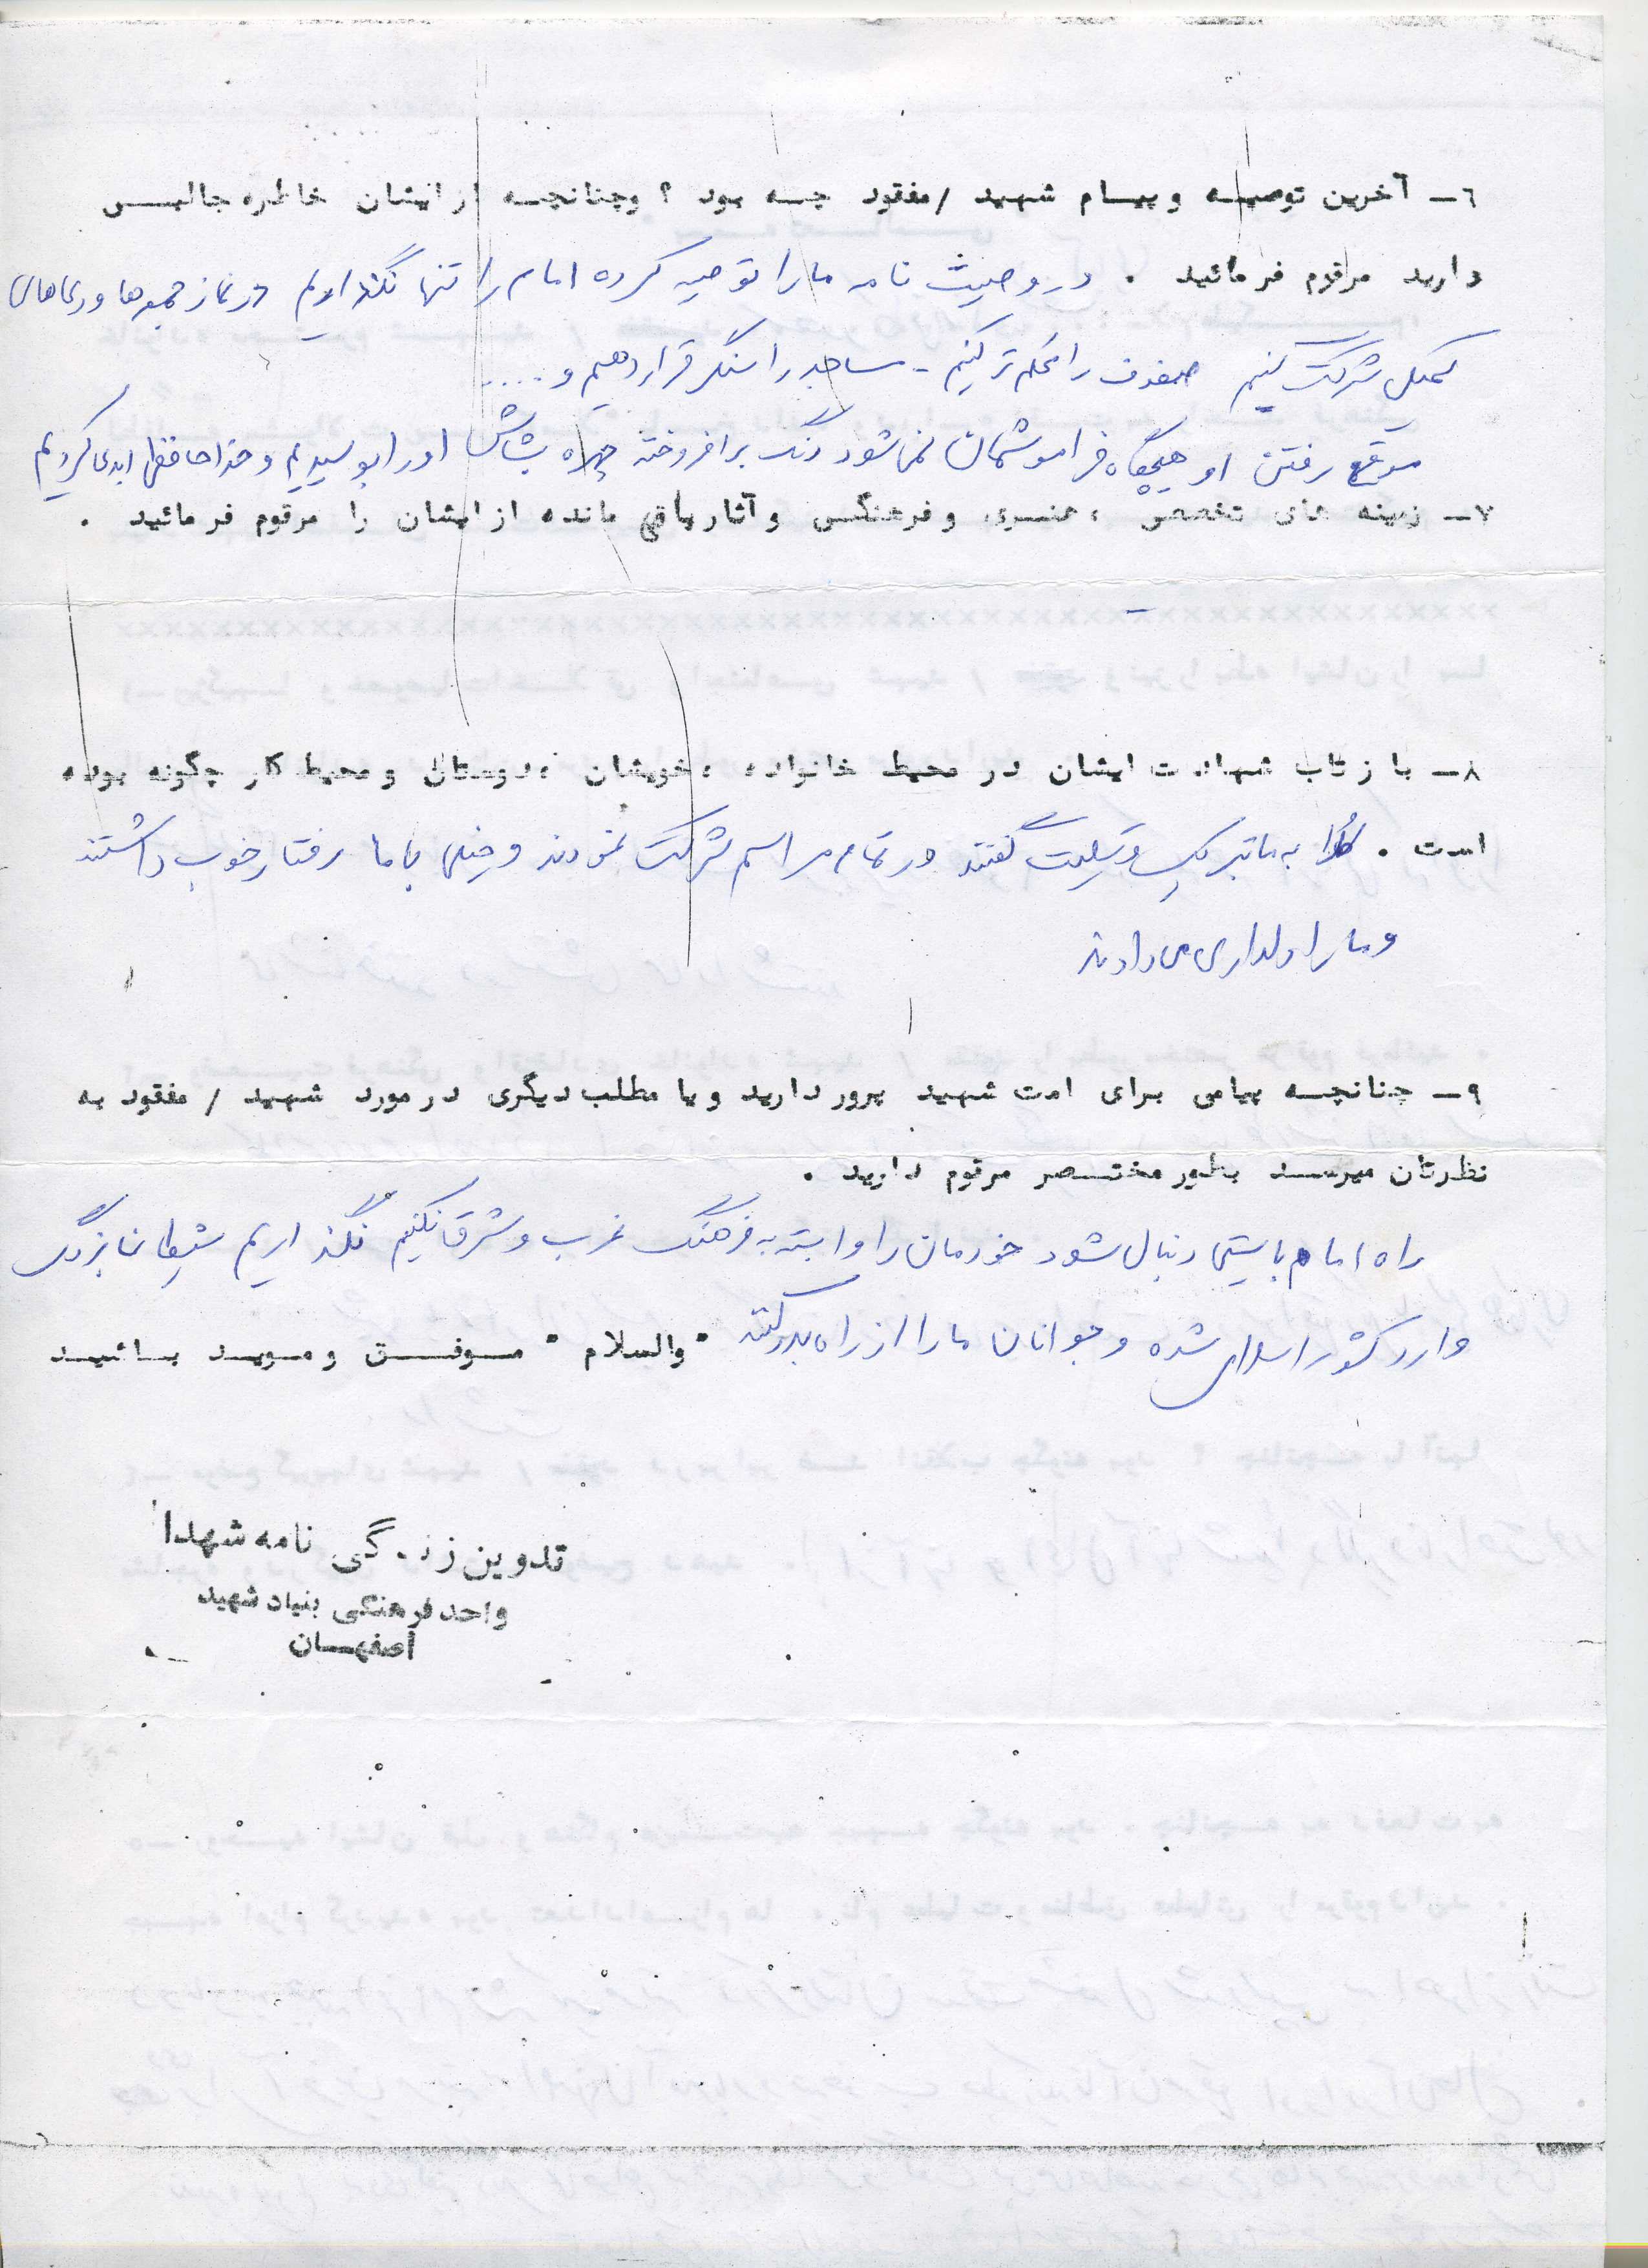 ٦ـ آخرین توصیه و پیام شهید /مفقود چه بود ؟ وچنانچه از ایشان خاطره جالبی
دارید مرقوم فرمائید . در وصیت نامه ما را توصیه کرده امام را تنها نگذاریم در نماز جمعه‌ها و دعاهای
کمیل شرکت کنیم صفوف را محکم تر کنیم - مساجد را سنگر قرار دهیم و ....
موقع رفتن او هیچگاه فراموشمان نمی شود رنگ برافروخته چهره بشاش او را بوسیدیم و خداحافظی ابدی کردیم
۷ـ زمینه های تخصصی ، هنری و فرهنگی و آثار باقی مانده از ایشان را مرقوم فرمائید .
ـ
۸ـ بازتاب شهادت ایشان در محیط خانواده ، خویشان ، دوستان و محیط کار چگونه بوده
است . کلا به ما تبریک و تسلیت گفتند در تمام مراسم شرکت نمودند و خیلی با ما رفتار خوب داشتند
و ما را دلداری می دادند
۹ـ چنانچه پیامی برای امت شهید پرور دارید و یا مطلب دیگری در مورد شهید / مفقود به
نظرتان میرسد بطور مختصر مرقوم دارید .
راه امام بایستی دنبال شود خودمان را وابسته به فرهنگ غرب و شرق نکنیم نگذاریم شیطان بزرگ
وارد کشور اسلامی شده و جوانان ما را از راه بدر کند " والسلام " موفق و موید باشید
تدوین زندگی نامه شهدا
واحد فرهنگی بنیاد شهید
اصفهان